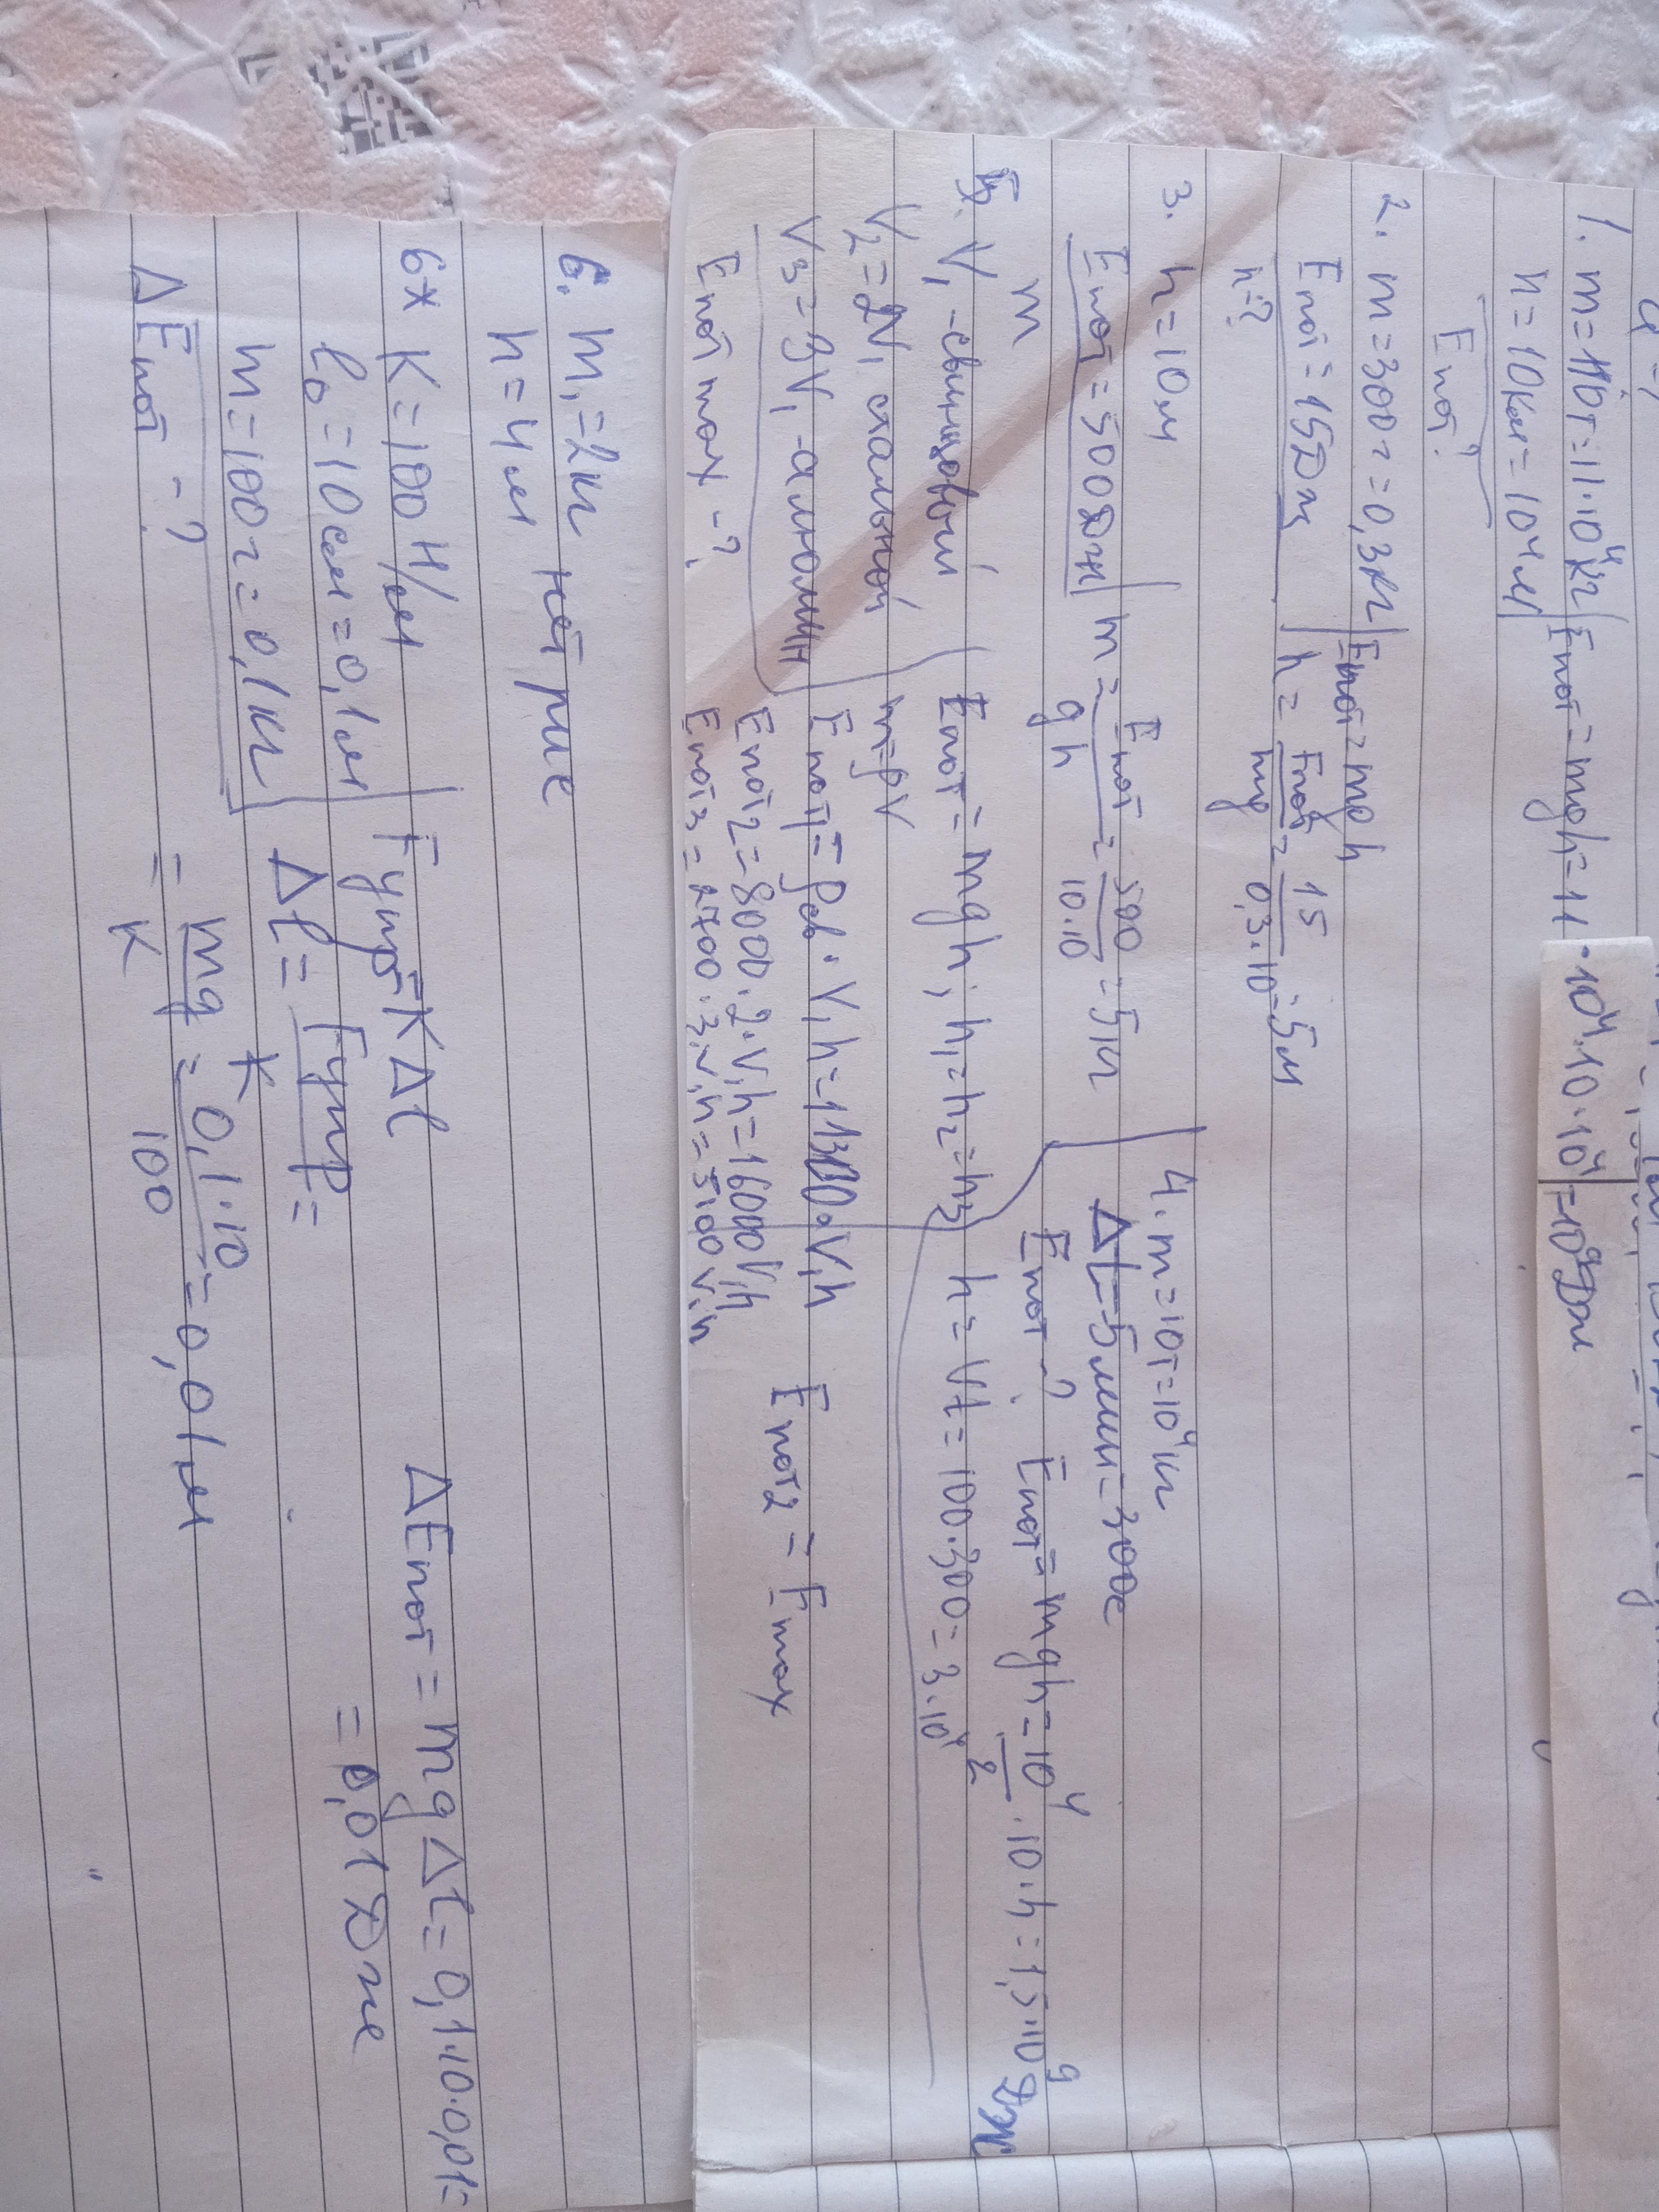 1. m = 110т = 11·10⁴кг | Eпот = mgh = 11·10⁴·10·10⁴ = 10⁹Дж
h = 10км = 10⁴м
Eпот?
2. m = 300г = 0,3кг | Eпот = mgh
Eпот = 15Дж | h = Eпот/mg = 15/0,3·10 = 5м
h-?
3. h = 10м
Eпот = 500Дж | m = Eпот/gh = 500/10·10 = 5кг
m
4. m = 10т = 10⁴кг
Δt = 5мин = 300с
Eпот-? Eпот = mgh = 10⁴/2·10·h = 1,5·10⁹ Дж
h = Vt = 100·300 = 3·10⁴
5. V₁ - свинцовый | Eпот = mgh; h₁ = h₂ = h₃
V₂ = 2V₁ стальной m = ρV
V₃ = 3V₁ - алюмин Eпот1 = ρсв·V₁h = 11300·V₁h
Eпот max -? Eпот2 = 8000·2·V₁h = 16000V₁h Eпот2 = Emax
Eпот3 = 2700·3·V₁h = 5100V₁h
6. m₁ = 2кг нет рис
h = 4м
6* K = 100 Н/м | Fупр = KΔl ΔEпот = mgΔl = 0,1·10·0,01 =
l₀ = 10см = 0,1м Δl = Fупр/K = = 0,01Дж
m = 100г = 0,1кг = mg/K = 0,1·10/100 = 0,01м
ΔEпот -?